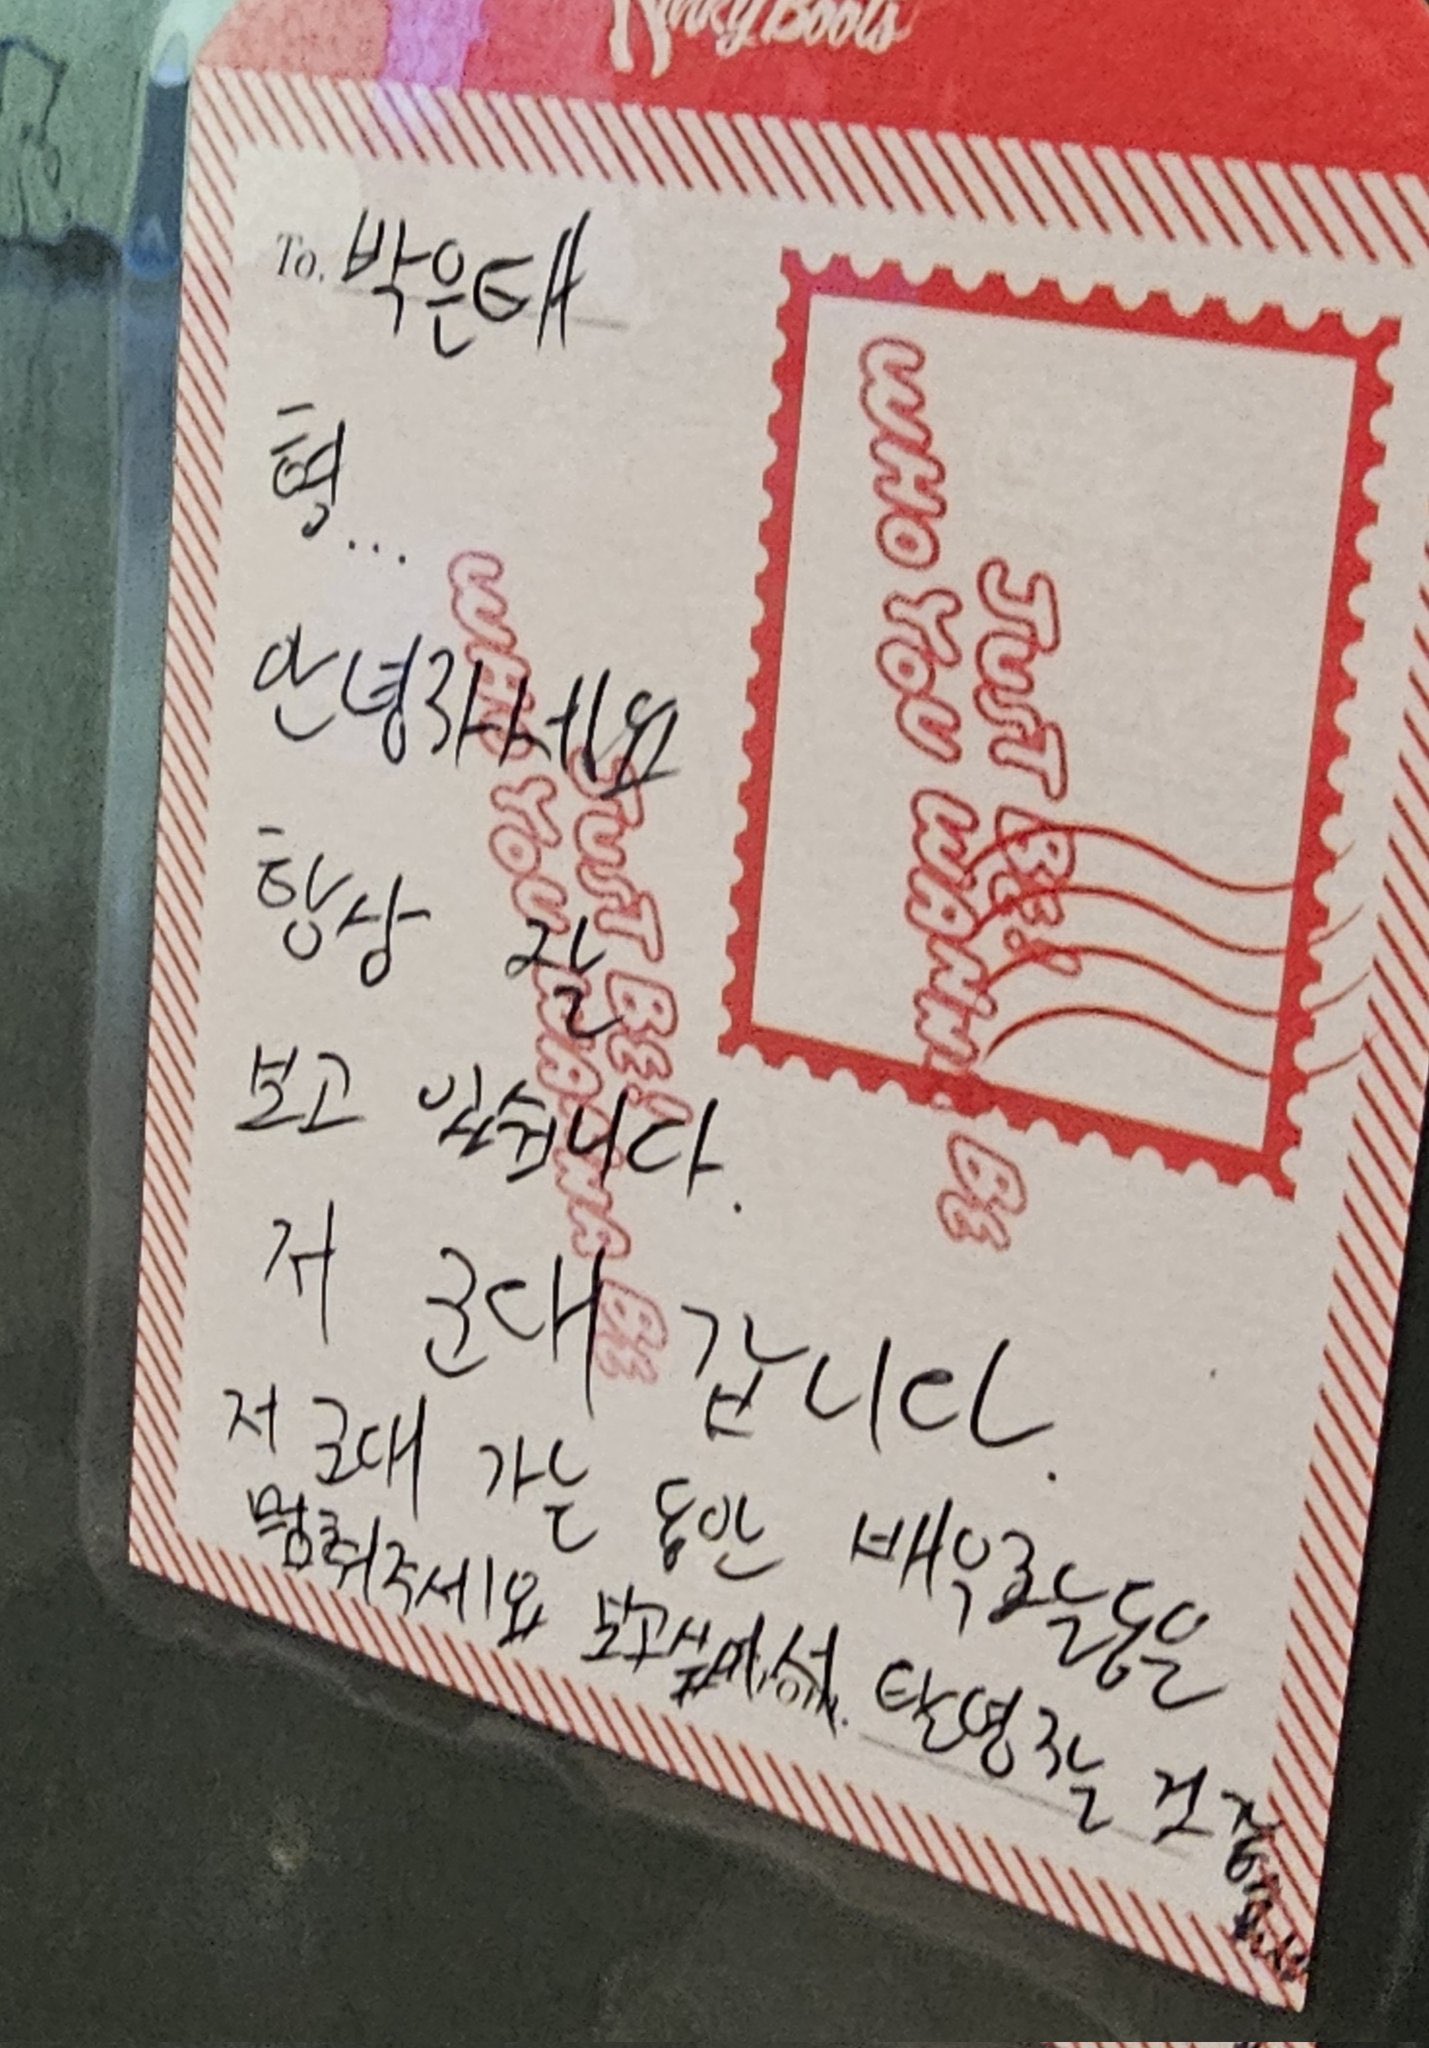 Kinky Boots
To. 박은태
형...
안녕하세요
항상 잘
보고 있습니다.
저 군대 갑니다.
저 군대 가는 동안 배우로늙음
멈춰주세요 보고싶어서.
JUST BE!
WHO YOU WANNA BE
JUST BE!
WHO YOU WANNA BE